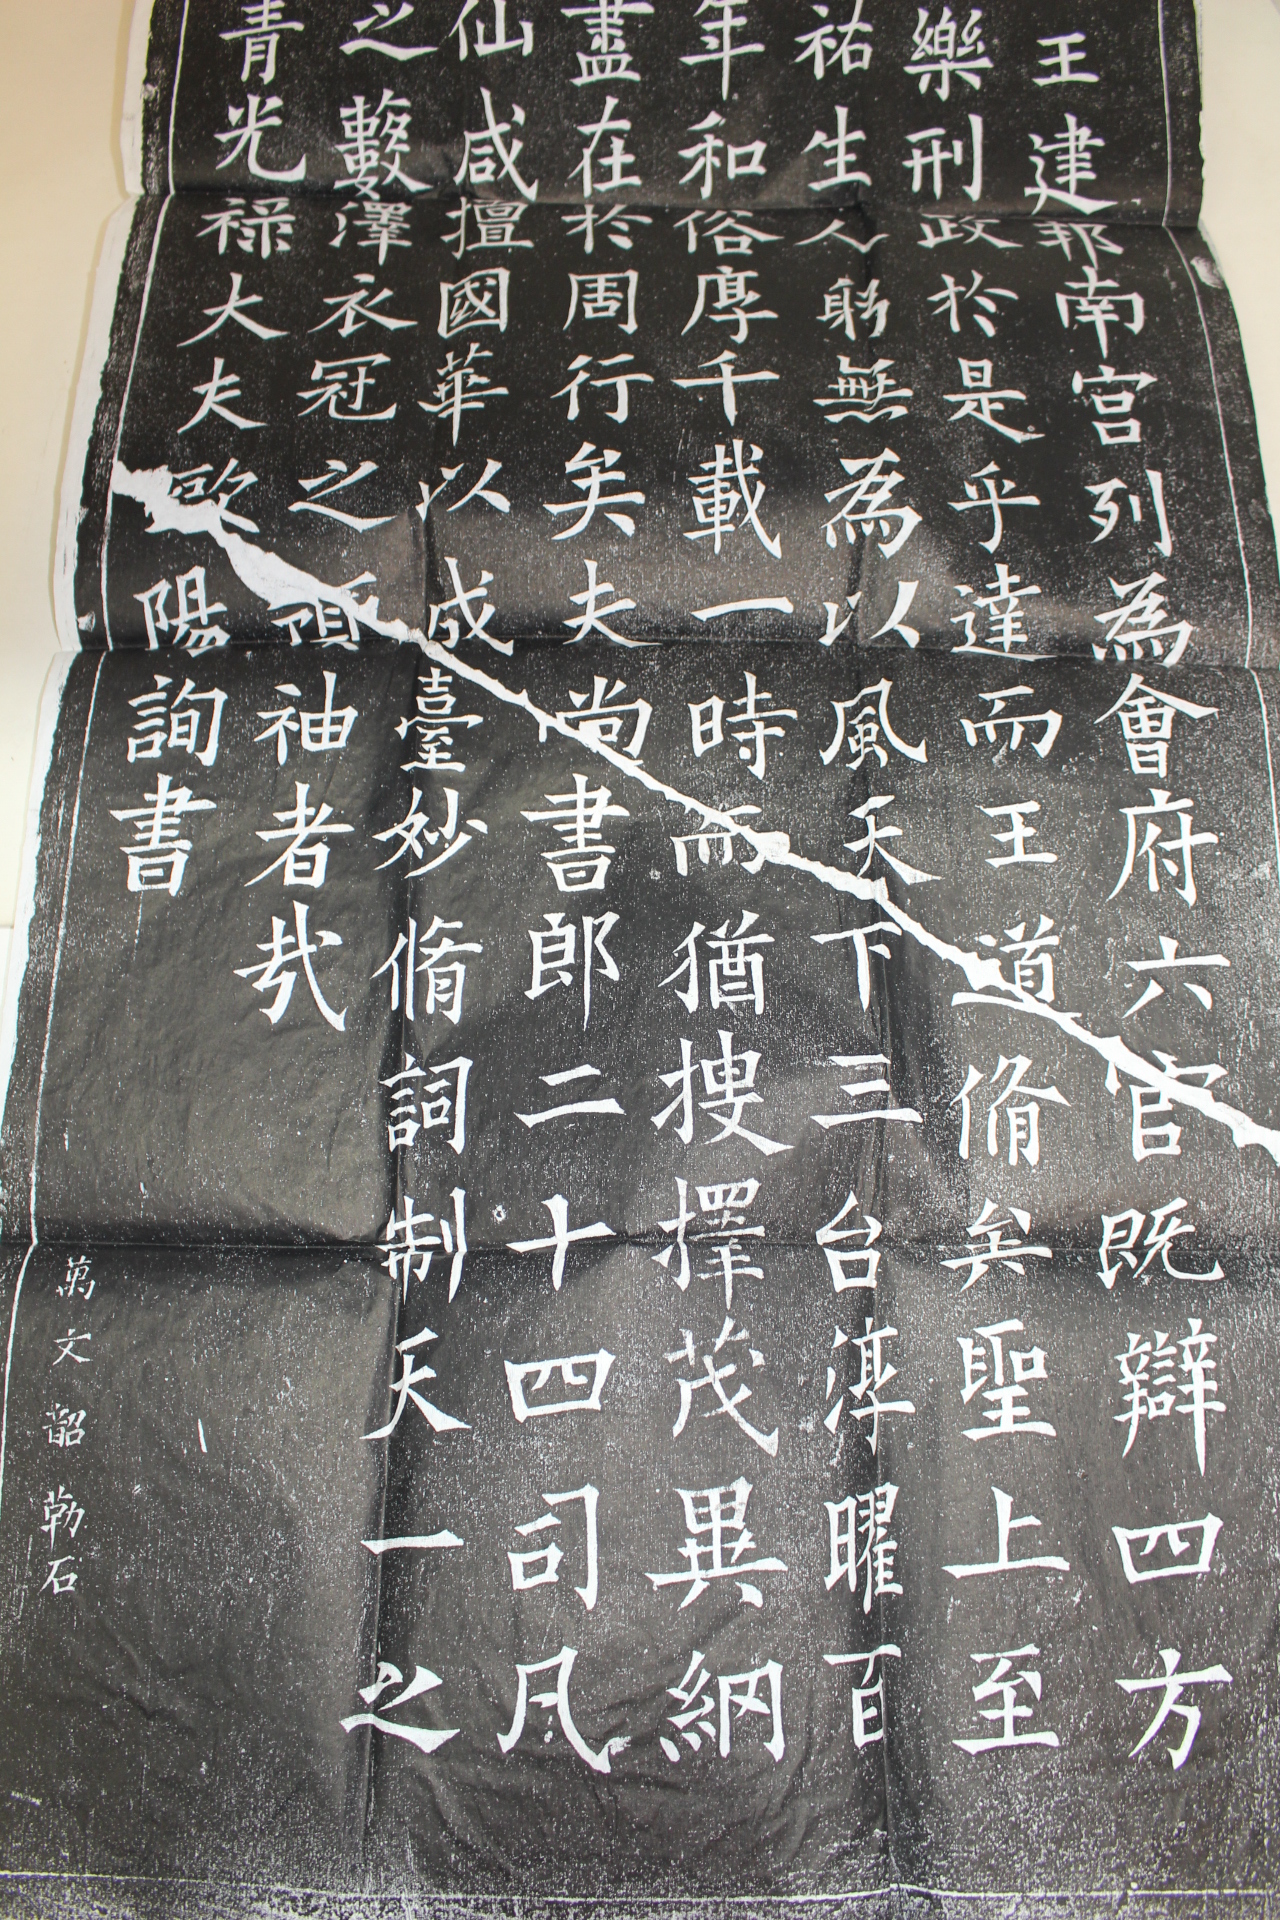 王建邦南宮列為會府六官既辯四方
樂刑政於是乎達而王道脩矣聖上至
祐生人躬無為以風天下三台淳曜百
年和俗厚千載一時而猶搜擇茂異納
盡在於周行矣夫尚書郎二十四司凡
仙咸擅國華以成臺妙脩詞制天一之
之藪澤衣冠之領袖者哉
青光祿大夫歐陽詢書
萬文韶勒石